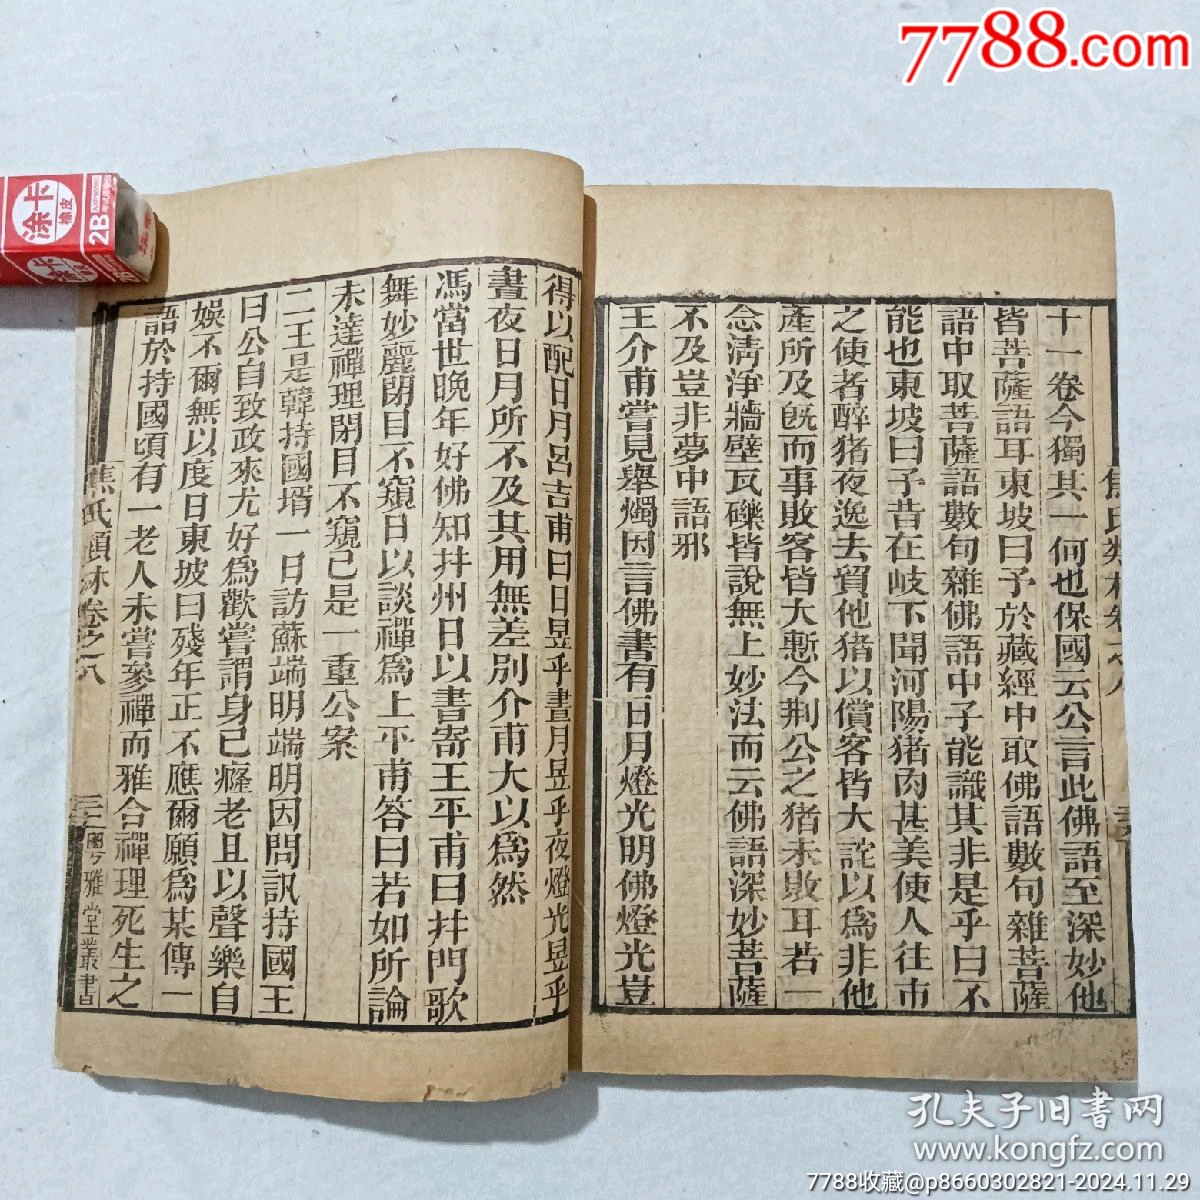 7788.com
涂卡
橡皮
2B
十一卷今獨其一何也保國云公言此佛語至深妙他
皆菩薩語耳東坡曰予於藏經中取佛語數句雜菩薩
語中取菩薩語數句雜佛語中子能識其非是乎曰不
能也東坡曰予昔在岐下聞河陽猪肉甚美使人往市
之使者醉猪夜逸去貿他猪以償客皆大詫以為非他
產所及既而事敗客皆大慙今荆公之猪未敗耳若一
念清淨牆壁瓦礫皆說無上妙法而云佛語深妙菩薩
不及豈非夢中語邪
王介甫嘗見舉燭因言佛書有日月燈光明佛燈光豈
得以配日月呂吉甫曰日昱乎晝月昱乎夜燈光昱乎
晝夜日月所不及其用無差別介甫大以為然
馮當世晚年好佛知并州日以書寄王平甫曰并門歌
舞妙麗閉目不窺日以談禪為上平甫答曰若如所論
未達禪理閉目不窺已是一重公案
二王是韓持國壻一日訪蘇端明端明因問訊持國王
曰公自致政來尤好為歡嘗謂身已癃老且以聲樂自
娛不爾無以度日東坡曰殘年正不應爾願為某傳一
語於持國頃有一老人未嘗參禪而雅合禪理死生之
焦氏類林卷之八
粵雅堂叢書
孔夫子旧書网
www.kongfz.com
7788收藏@p8660302821-2024.11.29